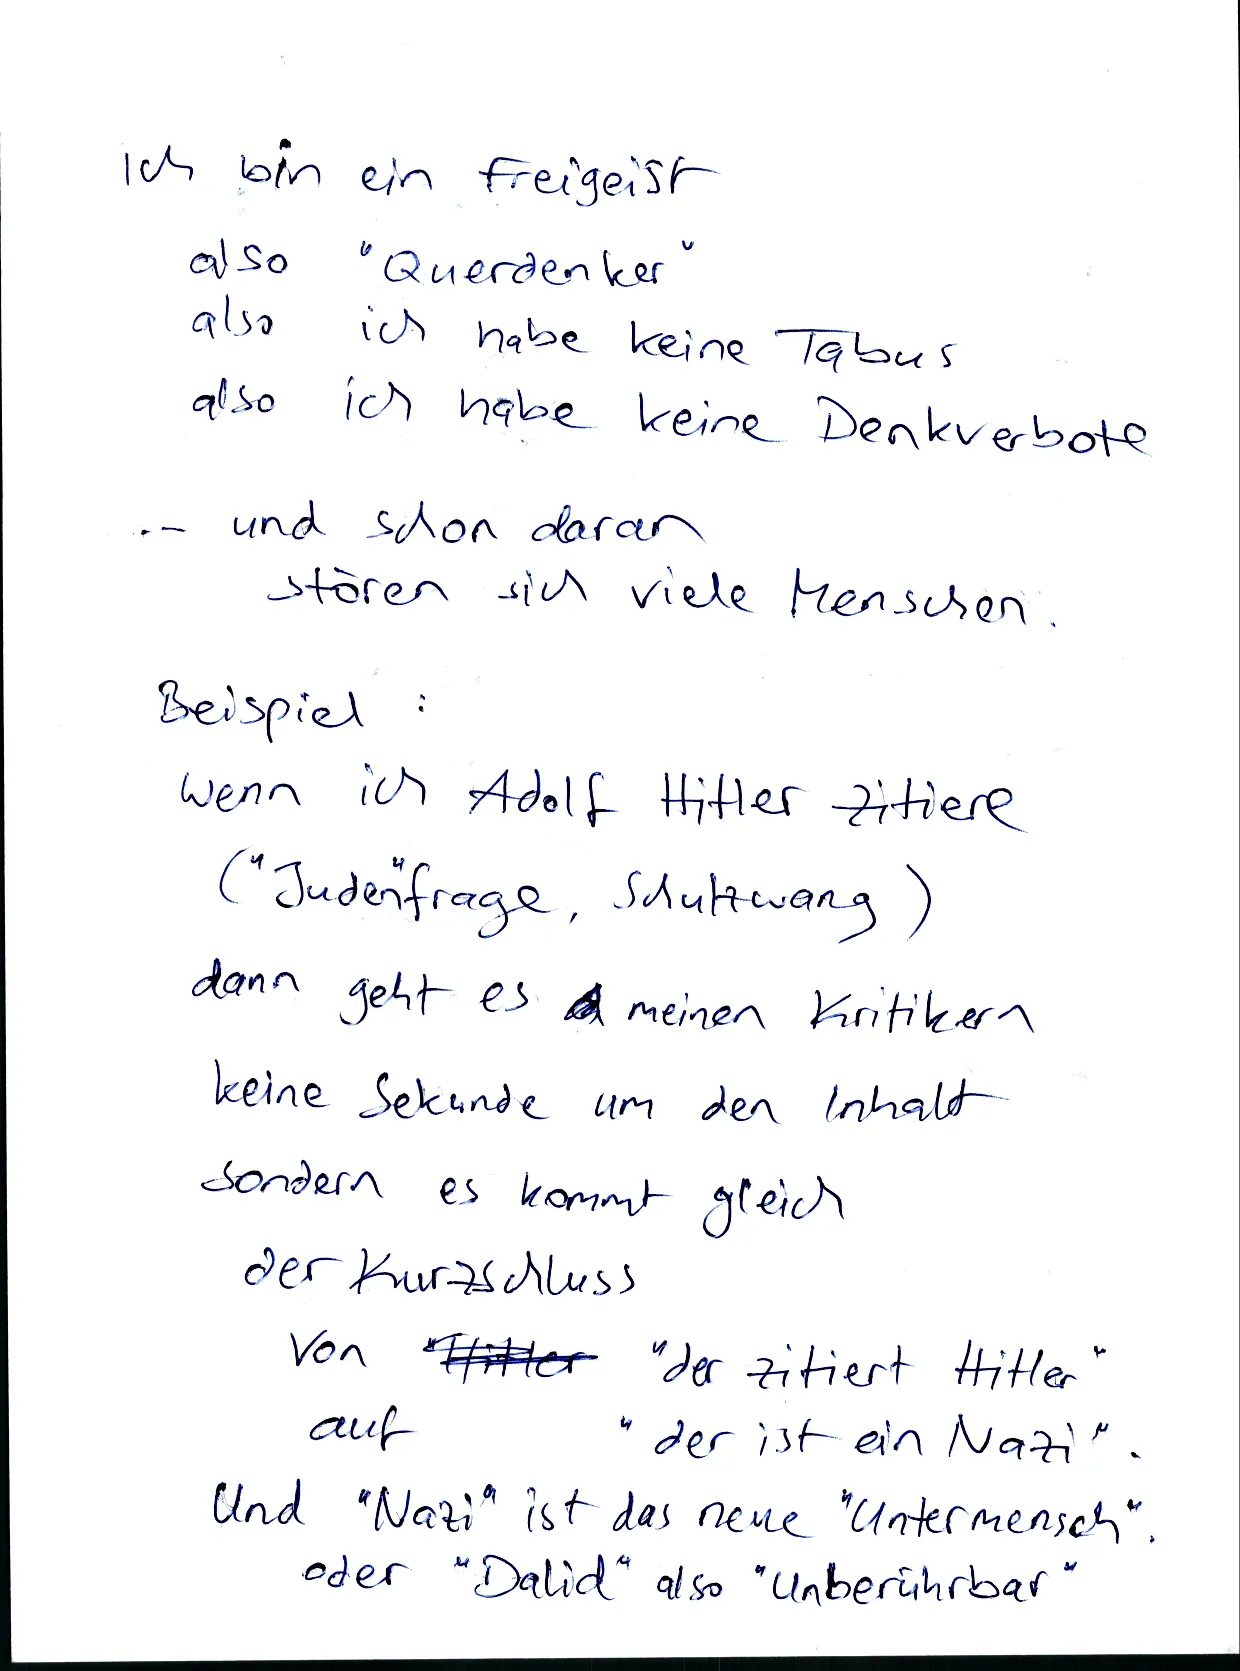 Ich bin ein Freigeist
also "Querdenker"
also ich habe keine Tabus
also ich habe keine Denkverbote
... und schon daran
stören sich viele Menschen.
Beispiel :
wenn ich Adolf Hitler zitiere
("Juden"frage, Schulzwang)
dann geht es meinen Kritikern
keine Sekunde um den Inhalt
sondern es kommt gleich
der Kurzschluss
von "Hitler "der zitiert Hitler"
auf "der ist ein Nazi".
Und "Nazi" ist das neue "Untermensch".
oder "Dalid" also "Unberührbar"